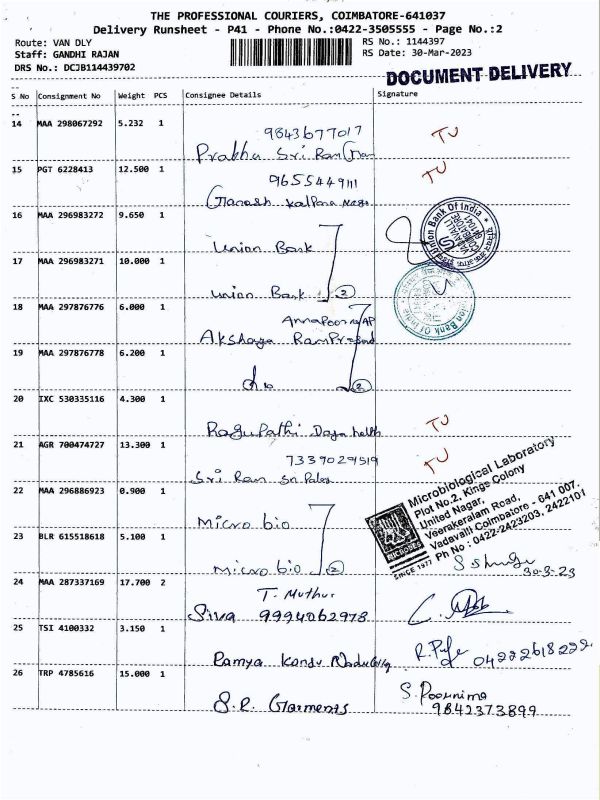 THE PROFESSIONAL COURIERS, COIMBATORE-641037
Delivery Runsheet - P41 - Phone No.:0422-3505555 - Page No.:2
Route: VAN DLY
Staff: GANDHI RAJAN
DRS No.: DCJB114439702
RS No.: 1144397
RS Date: 30-Mar-2023
DOCUMENT DELIVERY
S No Consignment No Weight PCS Consignee Details Signature
14 MAA 298067292 5.232 1
9843677017
Prabhu Sri Ram
TU
15 PGT 6228413 12.500 1
9655449111
Ganesh Kalpana
TU
16 MAA 296983272 9.650 1
Union Bank
Union Bank Of India
17 MAA 296983271 10.000 1
Union Bank 2
Union Bank Of India
18 MAA 297876776 6.000 1
Annapoorna AP
Akshaya RamPrasad
19 MAA 297876778 6.200 1
do 2
20 IXC 530335116 4.300 1
Ragupathi
TU
21 AGR 700474727 13.300 1
7339029519
Sri Ram
TU
22 MAA 296886923 0.900 1
Micro bio
Microbiological Laboratory
Plot No.2, Kings Colony
United Nagar,
Veerakeralam Road,
Vadavalli Coimbatore - 641 007.
Ph No : 0422-2423203, 2422101
SINCE 1977
23 BLR 615518618 5.100 1
Micro bio 2
30-3-23
24 MAA 287337169 17.700 2
T. Muthur
Siva 9994062978
25 TSI 4100332 3.150 1
Ramya
04222618222
26 TRP 4785616 15.000 1
S.R. Garments
S. Poornima
9842373899